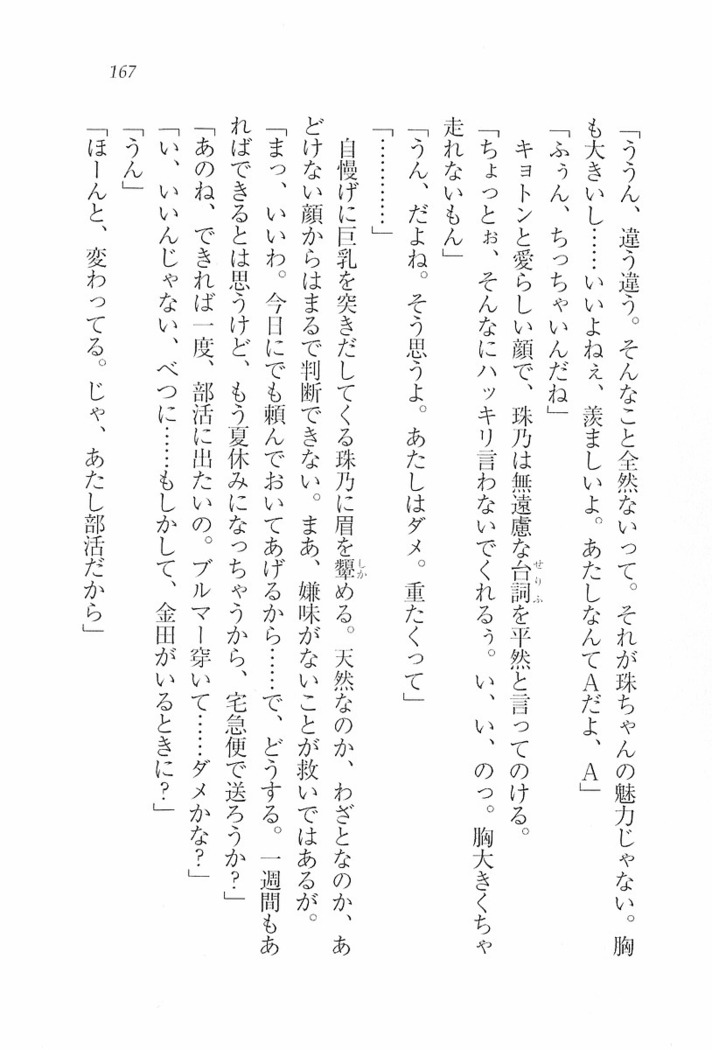 167
「ううん、違う違う。そんなこと全然ないって。それが珠ちゃんの魅力じゃない。胸
も大きいし……いいよねぇ、羨ましいよ。あたしなんてAだよ、A」
「ふぅん、ちっちゃいんだね」
キョトンと愛らしい顔で、珠乃は無遠慮な台詞を平然と言ってのける。
「ちょっとぉ、そんなにハッキリ言わないでくれるぅ。い、い、のっ。胸大きくちゃ
走れないもん」
「うん、だよね。そう思うよ。あたしはダメ。重たくって」
「…………」
自慢げに巨乳を突きだしてくる珠乃に眉を顰める。天然なのか、わざとなのか、あ
どけない顔からはまるで判断できない。まあ、嫌味がないことが救いではあるが。
「まっ、いいわ。今日にでも頼んでおいてあげるから……で、どうする。一週間もあ
ればできるとは思うけど、もう夏休みになっちゃうから、宅急便で送ろうか?」
「あのね、できれば一度、部活に出たいの。ブルマー穿いて……ダメかな?」
「い、いいんじゃない、べつに……もしかして、金田がいるときに?」
「うん」
「ほーんと、変わってる。じゃ、あたし部活だから」